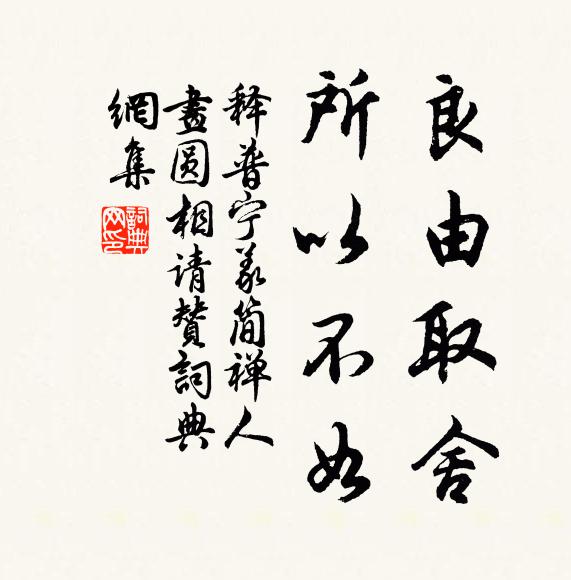 良由取舍
所以不如
释普宁羲简禅人
畫圆相请赞詞典
網集
詞典
网印